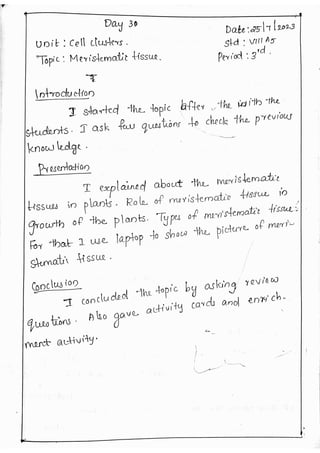 Day 30
Date: 25/7/2023
Unit: Cell clusters.
Std: VIII A5
Topic: Meristematic tissue.
Period: 3rd.
Introduction
I started the topic after the with the
students. I ask few questions to check the previous
knowledge.
Presentation
I explained about the meristematic
tissues in plants. Role of meristematic tissue in
growth of the plants. Types of meristematic tissue.
For that I use laptop to show the picture of meri-
stematic tissue.
Conclusion
I concluded the topic by asking review
questions. Also gave activity cards and enrich-
ment activity.